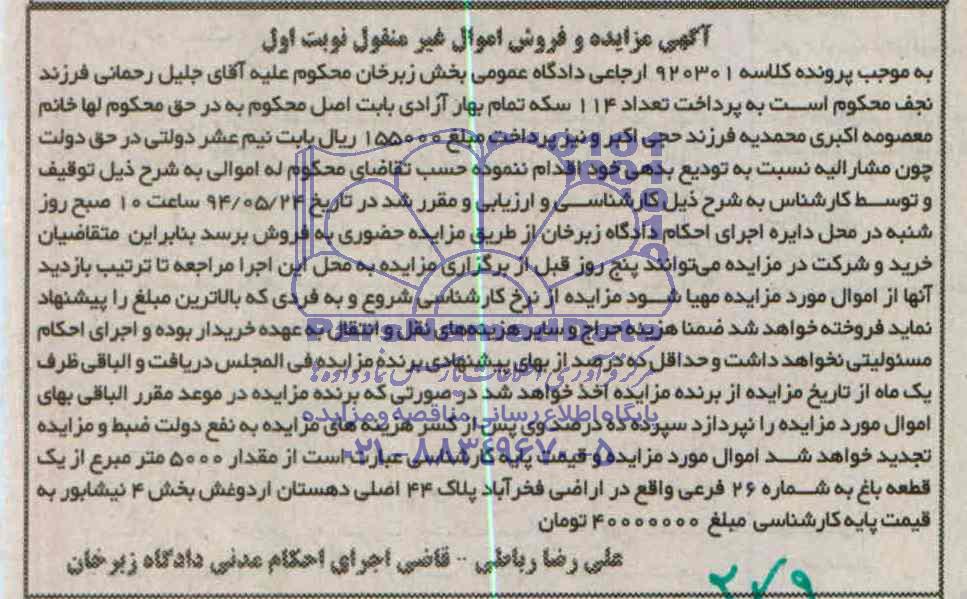 آگهی مزایده و فروش اموال غیر منقول نوبت اول
به موجب پرونده کلاسه ۹۲۰۳۰۱ ارجاعی دادگاه عمومی بخش زبرخان محکوم علیه آقای جلیل رحمانی فرزند
نجف محکوم است به پرداخت تعداد ۱۱۴ سکه تمام بهار آزادی بابت اصل محکوم به در حق محکوم لها خانم
معصومه اکبری محمدیه فرزند حجی اکبر و نیز پرداخت مبلغ ۱۵۵۰۰۰ ریال بابت نیم عشر دولتی در حق دولت
چون مشارالیه نسبت به تودیع بدهی خود اقدام ننموده حسب تقاضای محکوم له اموالی به شرح ذیل توقیف
و توسط کارشناس به شرح ذیل کارشناسی و ارزیابی و مقرر شد در تاریخ ۹۴/۰۵/۲۴ ساعت ۱۰ صبح روز
شنبه در محل دایره اجرای احکام دادگاه زبرخان از طریق مزایده حضوری به فروش برسد بنابراین متقاضیان
خرید و شرکت در مزایده می‌توانند پنج روز قبل از برگزاری مزایده به محل این اجرا مراجعه تا ترتیب بازدید
آنها از اموال مورد مزایده مهیا شود مزایده از نرخ کارشناسی شروع و به فردی که بالاترین مبلغ را پیشنهاد
نماید فروخته خواهد شد ضمنا هزینه حراج و سایر هزینه‌های نقل و انتقال به عهده خریدار بوده و اجرای احکام
مسئولیتی نخواهد داشت و حداقل ده درصد از بهای پیشنهادی برنده مزایده فی المجلس دریافت و الباقی ظرف
یک ماه از تاریخ مزایده از برنده مزایده اخذ خواهد شد در صورتی که برنده مزایده در موعد مقرر الباقی بهای
اموال مورد مزایده را نپردازد سپرده ده درصدی وی پس از کسر هزینه های مزایده به نفع دولت ضبط و مزایده
تجدید خواهد شد اموال مورد مزایده و قیمت پایه کارشناسی عبارت است از مقدار ۵۰۰۰ متر مبرع از یک
قطعه باغ به شماره ۲۶ فرعی واقع در اراضی فخرآباد پلاک ۴۴ اصلی دهستان اردوغش بخش ۴ نیشابور به
قیمت پایه کارشناسی مبلغ ۴۰۰۰۰۰۰۰ تومان
علی رضا رباطی -- قاضی اجرای احکام مدنی دادگاه زبرخان
ParsNamadData
مرکز فرآوری اطلاعات پارس نماد داده‌ها
پایگاه اطلاع رسانی مناقصه و مزایده
۰۲۱-۸۸۳۴۹۶۷۰-۵